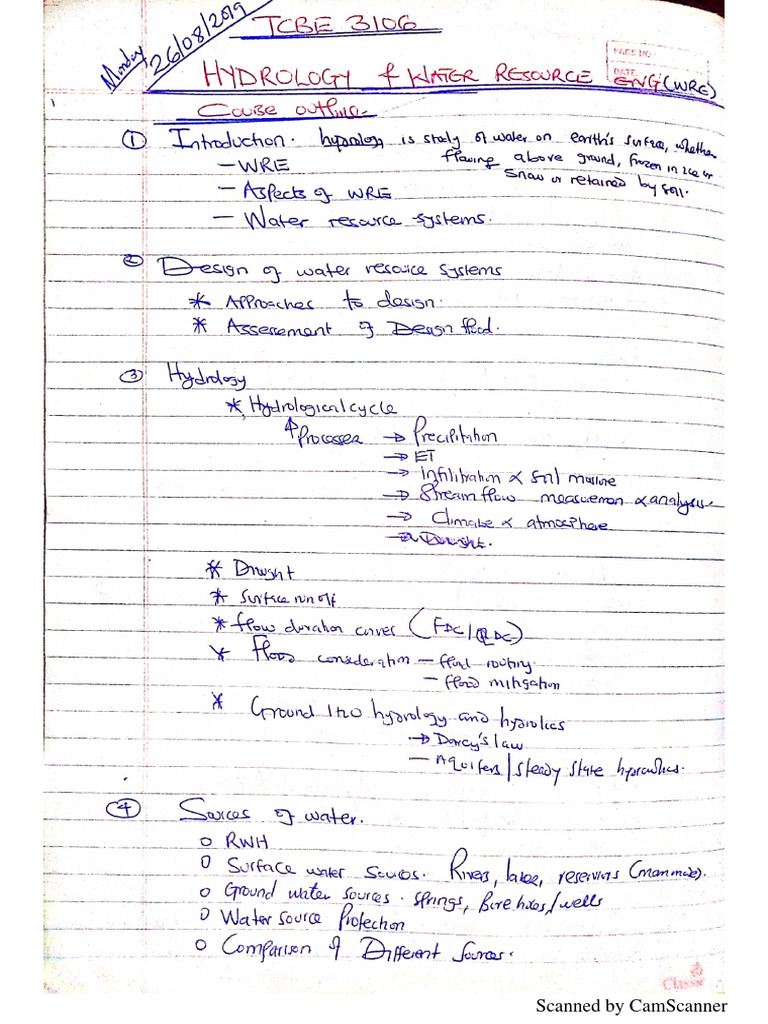 Monday 26/08/2019
TCBE 3106
PAGE NO
DATE
HYDROLOGY & WATER RESOURCE ENG(WRE)
Couse outline
① Introduction. hydrology is study of water on earth's surface, whether
flowing above ground, frozen in ice or
snow or retained by soil.
- WRE
- Aspects of WRE
- Water resource systems.
② Design of water resource systems
* Approaches to design.
* Assessement of Design flood.
③ Hydrology
* Hydrological cycle
Processes → Precipitation
→ ET
→ infilitration & soil moisture
→ Stream flow measurement & analysis
→ Climate & atmosphere
→ Drought.
* Drought
* surface run off
* flow duration curves (FDC/QDC)
* Flood consideration - flood routing
- flood mitigation
* Ground H2O hydrology and hydrolics
→ Darcy's law
- Aquifers/steady state hydraulics.
④ Sources of water.
o RWH
o Surface water sources. Rivers, lakes, reservoirs (manmade).
o Ground water sources. springs, Bore holes/wells
o Water source Protection
o Comparison of Different Sources.
Classic
Scanned by CamScanner